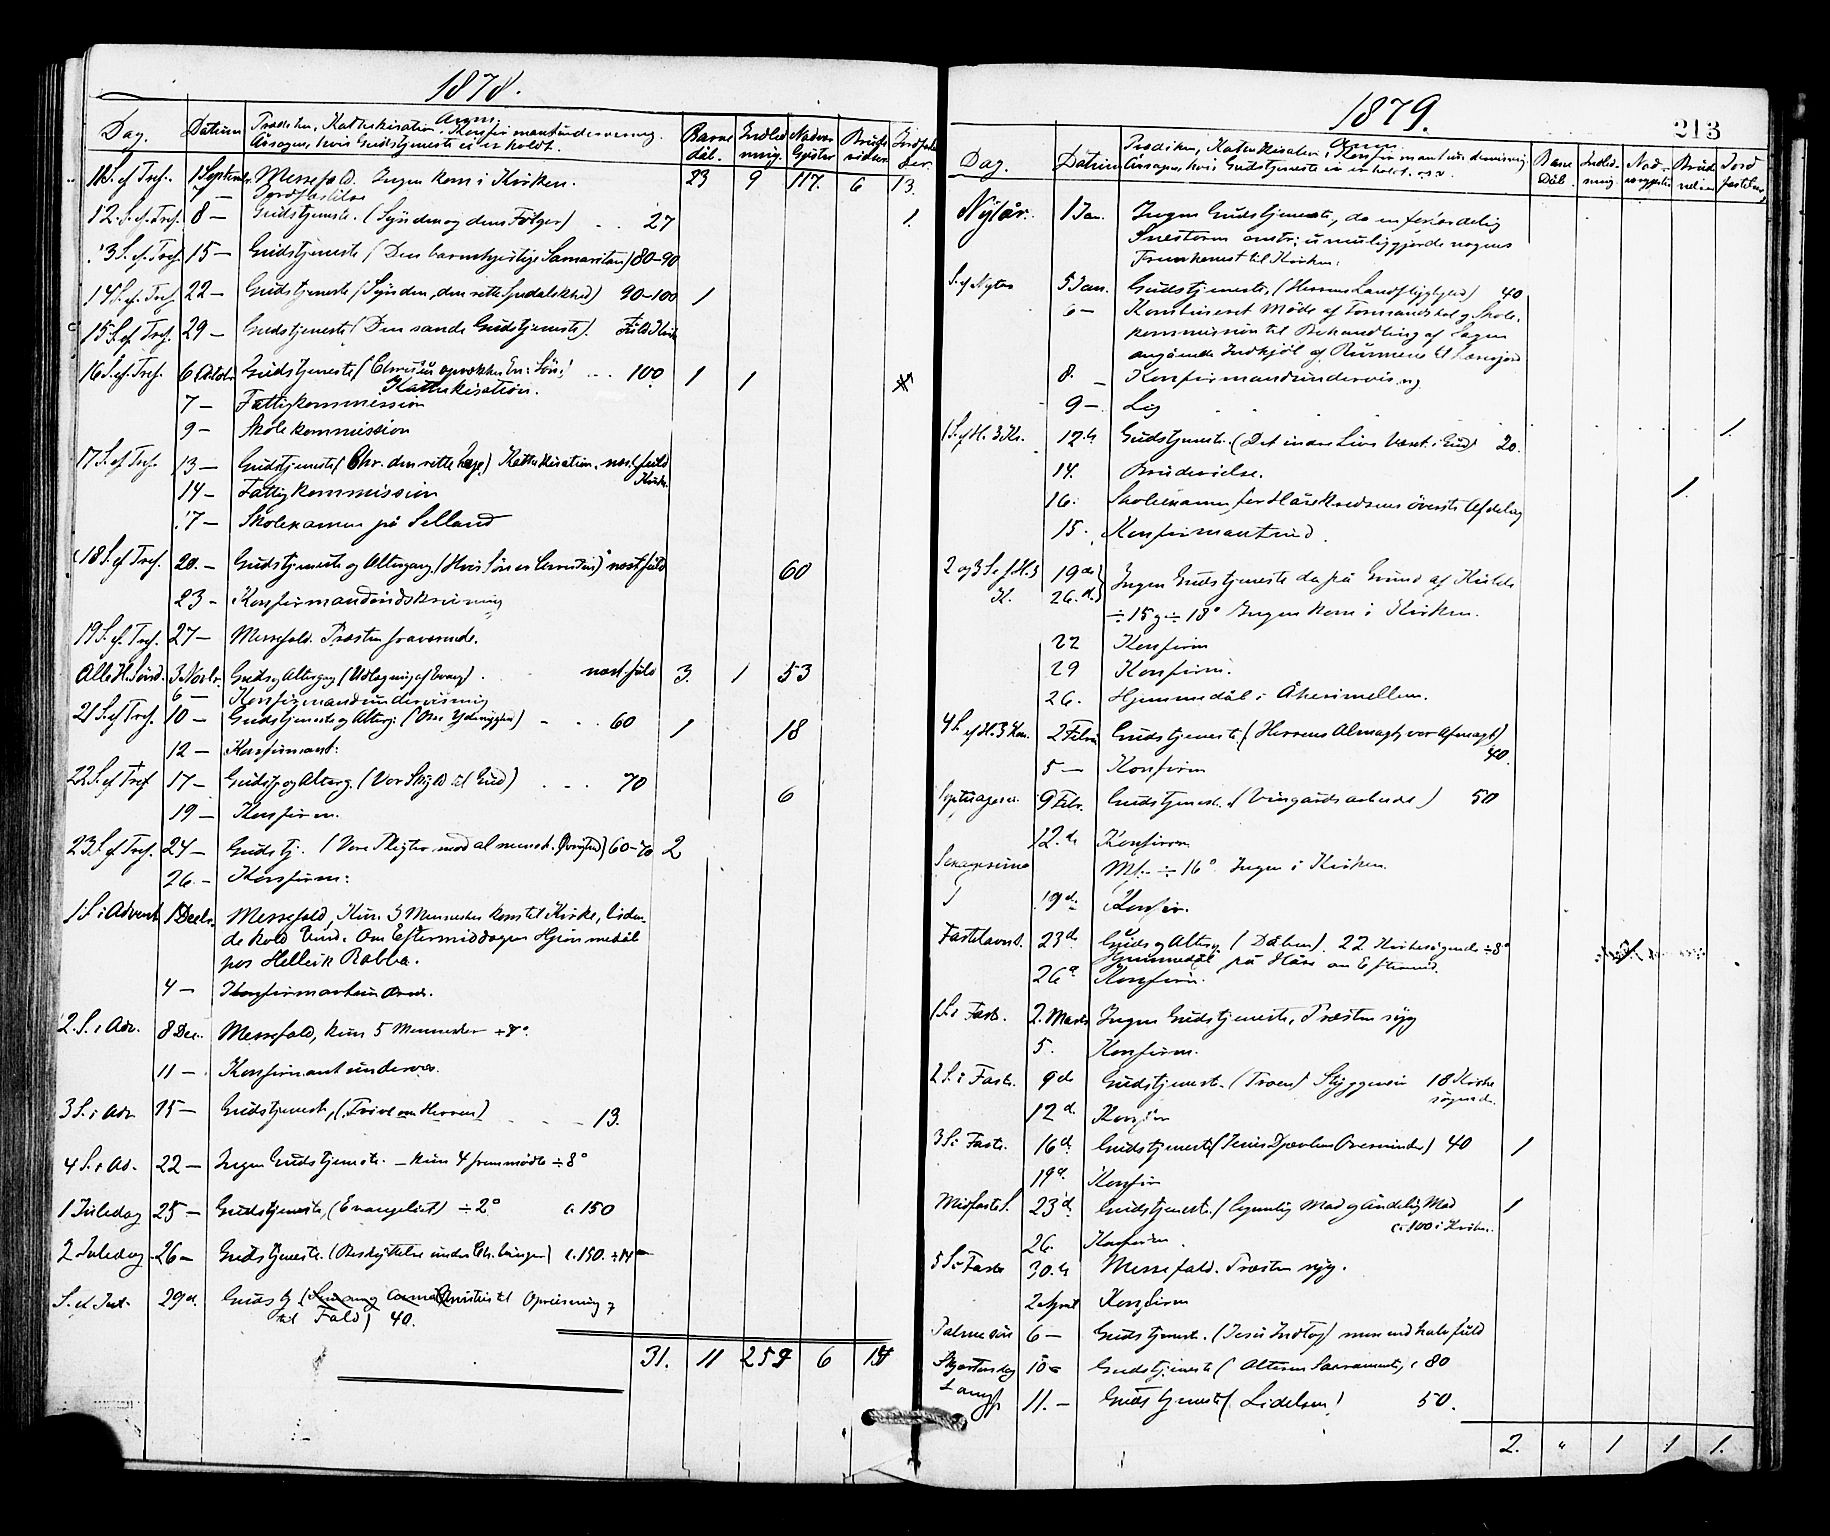 1878.
Dag. Datum Anm. Barne Indled Nadver Brude Jordfæstel
Prædiken, Kathekisation, Konfirmantundervisning. dåb. ning. Gjester vielser ser.
Årsagen, hvis Gudstjeneste ei er holdt.
11 S. ef Tref. 1 Septembr. Messefald. Ingen kom i Kirken. 23 9 117. 6 13.
7 — Jordfæstelse
12. S. ef. Tref. 8 — Gudstjeneste. (Synden og dens Følger) 27 1.
13 S. ef. Tref. 15 — Gudstjeneste (Den barmhjertige Samaritan) 80-90
14 S. ef Tref. 22 — Gudstjeneste (Synden, den rette Spedalskhed) 90-100 1
15 S. ef Tref. 29 — Gudstjeneste (Den sande Gudstjeneste). Fuld Kirke
16 S. ef. Tref. 6 Octobr Gudstjeneste (Christus opvækker En: Søn) 100. 1 1
Kathekisation.
7 — Fattigkommission
9 — Skolekommission
17 S. ef Tref. 13 — Gudstjeneste (Chr. den rette Læge) Kathekisation. næst fuld
Kirke.
14 — Fattigkommission
17 — Skolexamen på Selland
18 S. ef Tref. 20. — Gudstjeneste og Altergang. (Hvis Søn er Christus) næst fuld 60
23 — Konfirmandindskrivning
19 S. ef. Tref. 27 — Messefald. Præsten fraværende.
Alle H. Sønd. 3 Novbr. Guds og Altergag (Udlægning af Evang). næst fuld 3. 1 53
6 — Konfirmandundervisning
21 S. ef Tref. 10 — Gudstjeneste og Alterg. 60 1 18
12 — Konfirmant:
22 S. ef Tref. 17 — Gudstj. og Alterg. (Vor Skyld til Gud) 70 6
19 — Konfirm.
23 S. ef Tref. 24 — Gudstj. (Vore Pligter mod al mensk. Øvrighed) 60-70 2
26. — Konfirm:
1 S. i Advent 1 Decbr. Messefald, Kun 3 Mennesker kom til Kirke, liden-
de kold Vind. Om Eftermiddagen Hjemmedåb
hos Hellik Rabba.
4 — Konfirmantund.
2. S. i Adv. 8 Dec. Messefald, kun 5 Mennesker ÷ 8°
11 — Konfirmantunderv.
3 S. i Adv. 15 — Gudstjeneste, (Tvivl om Herren) 13.
4 S. i Ad. 22 — Ingen Gudstjeneste. — kun 4 fremmødte ÷ 8°
1 Juledag 25 — Gudstjeneste, (Evangeliet) ÷ 2° c. 150
2 Juledag 26 — Gudstjeneste. c. 150. ÷ 14
S. ef Jul. 29 d. Gudstj. (Christus til Opreisning &
til Fald) 40.
31. 11 259 6 13
1879. 213
Dag. Datum Anm. Barne Indled- Nad- Brude Jord
Prædiken, Kathekisation, Konfirmantundervisning. Dåb. ning. vergjester vielser fæstelser,
Årsagen, hvis Gudstjeneste ei er holdt. osv.
Nytår. 1 Jan. Ingen Gudstjeneste, da en færdelig
Snestorm omtr: umuliggjorde nogens
Fremkomst til Kirken.
S. ef Nytår 5 Jan. Gudstjeneste. (Herrens Landflygtighed) 40
6 — Kombineret Møde af Formandskab og Skole-
kommission til Behandling af Sagen
angående Indkjøb af
8. — Konfirmandundervisng
9 — Lig 1.
1 S. ef H. 3 K. 12te Gudstjeneste. (Det indre Livs Væxt i Gud) 20.
14. Brudevielse. 1.
16. Skolexamen for Håre Kredsens øverste Afdeling
15. Konfirmantund.
2 og 3 S. ef H. 3 19de Ingen Gudstjeneste da på Grund af Kulde
K. 26. de ÷ 15 og ÷ 18° Ingen kom i Kirken.
22 Konfirm
29 Konfirm.
26. Hjemmedåb i Åkerimellem.
4 S. ef H. 3 Kon. 2 Febru Gudstjeneste (Herrens Almagt, vor Afmagt)
40.
5 — Konfirm
Septuages. 9 Febr. Gudstjenest. (Vingårdsarbeidet) 50
12. de Konfirm
Sexagesima Mf. ÷ 16° Ingen i Kirken
19 de Konfir.
Fastelavns. 23 de Guds og Alterg (Dåben). 22 Kirkesøgende ÷ 8°
Hjemmedåb på Håre om Eftermid.
26 d Konfirm.
1 S. i Fast. 2. Marts Ingen Gudstjeneste, Præsten syg
5. Konfirm.
2 S. i Faste. 9 de Gudstjenest. (Troen) 18 Kirke
søgende.
12 d. Konfir
3 S. i Faste. 16 d. Gudstjeneste (Jesus Djævlens Overvinder) 40 1
19 d. Konfir
Midfaste S. 23 d. Gudstjeneste. (legemlig Mad og Åndelig Mad 1
c. 100 i Kirken.
26. Konfirm.
5 S. i Faste 30. te Messefald. Præsten syg.
2 April Konfirm
Palmesøn 6 — Gudstjenest. (Jesu Indtog) mer end halv fuld
Skjærtorsdag 10 — Gudstjeneste (Alterens Sacramente, c 80
Langf 11. — Gudstjeneste (Lidelsen) 50.
2. " 1 1 1.